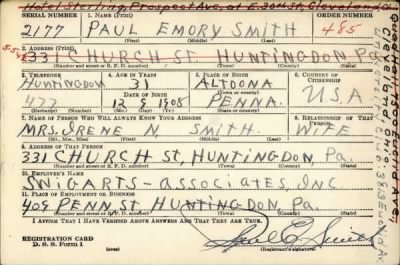 Hotel Sterling, Prospect Ave, at E. 30th St, Cleveland, O
SERIAL NUMBER 1. NAME (Print) ORDER NUMBER
2177 PAUL EMORY SMITH 485
(First) (Middle) (Last)
2. ADDRESS (Print)
331 CHURCH ST. HUNTINGDON, Pa
(Number and street or R. F. D. number) (Town) (County) (State)
3. TELEPHONE 4. AGE IN YEARS 5. PLACE OF BIRTH 6. COUNTRY OF CITIZENSHIP
HUNTINGDON 31 ALTOONA
DATE OF BIRTH (Town or county)
477 12 9 1908 PENNA. U.S.A
(Exchange) (Number) (Mo.) (Day) (Yr.) (State or country)
7. NAME OF PERSON WHO WILL ALWAYS KNOW YOUR ADDRESS 8. RELATIONSHIP OF THAT PERSON
MRS. IRENE N. SMITH. WIFE
(Mr., Mrs., Miss) (First) (Middle) (Last)
9. ADDRESS OF THAT PERSON
331 CHURCH St, HUNTINGDON, Pa.
(Number and street or R. F. D. number) (Town) (County) (State)
10. EMPLOYER'S NAME
SWIGART - ASSOCIATES, INC
11. PLACE OF EMPLOYMENT OR BUSINESS
409 PENN. ST. HUNTINGDON, Pa.
(Number and street or R. F. D. number) (Town) (County) (State)
I AFFIRM THAT I HAVE VERIFIED ABOVE ANSWERS AND THAT THEY ARE TRUE.
REGISTRATION CARD
D. S. S. Form 1
Paul E. Smith
(Registrant's signature)